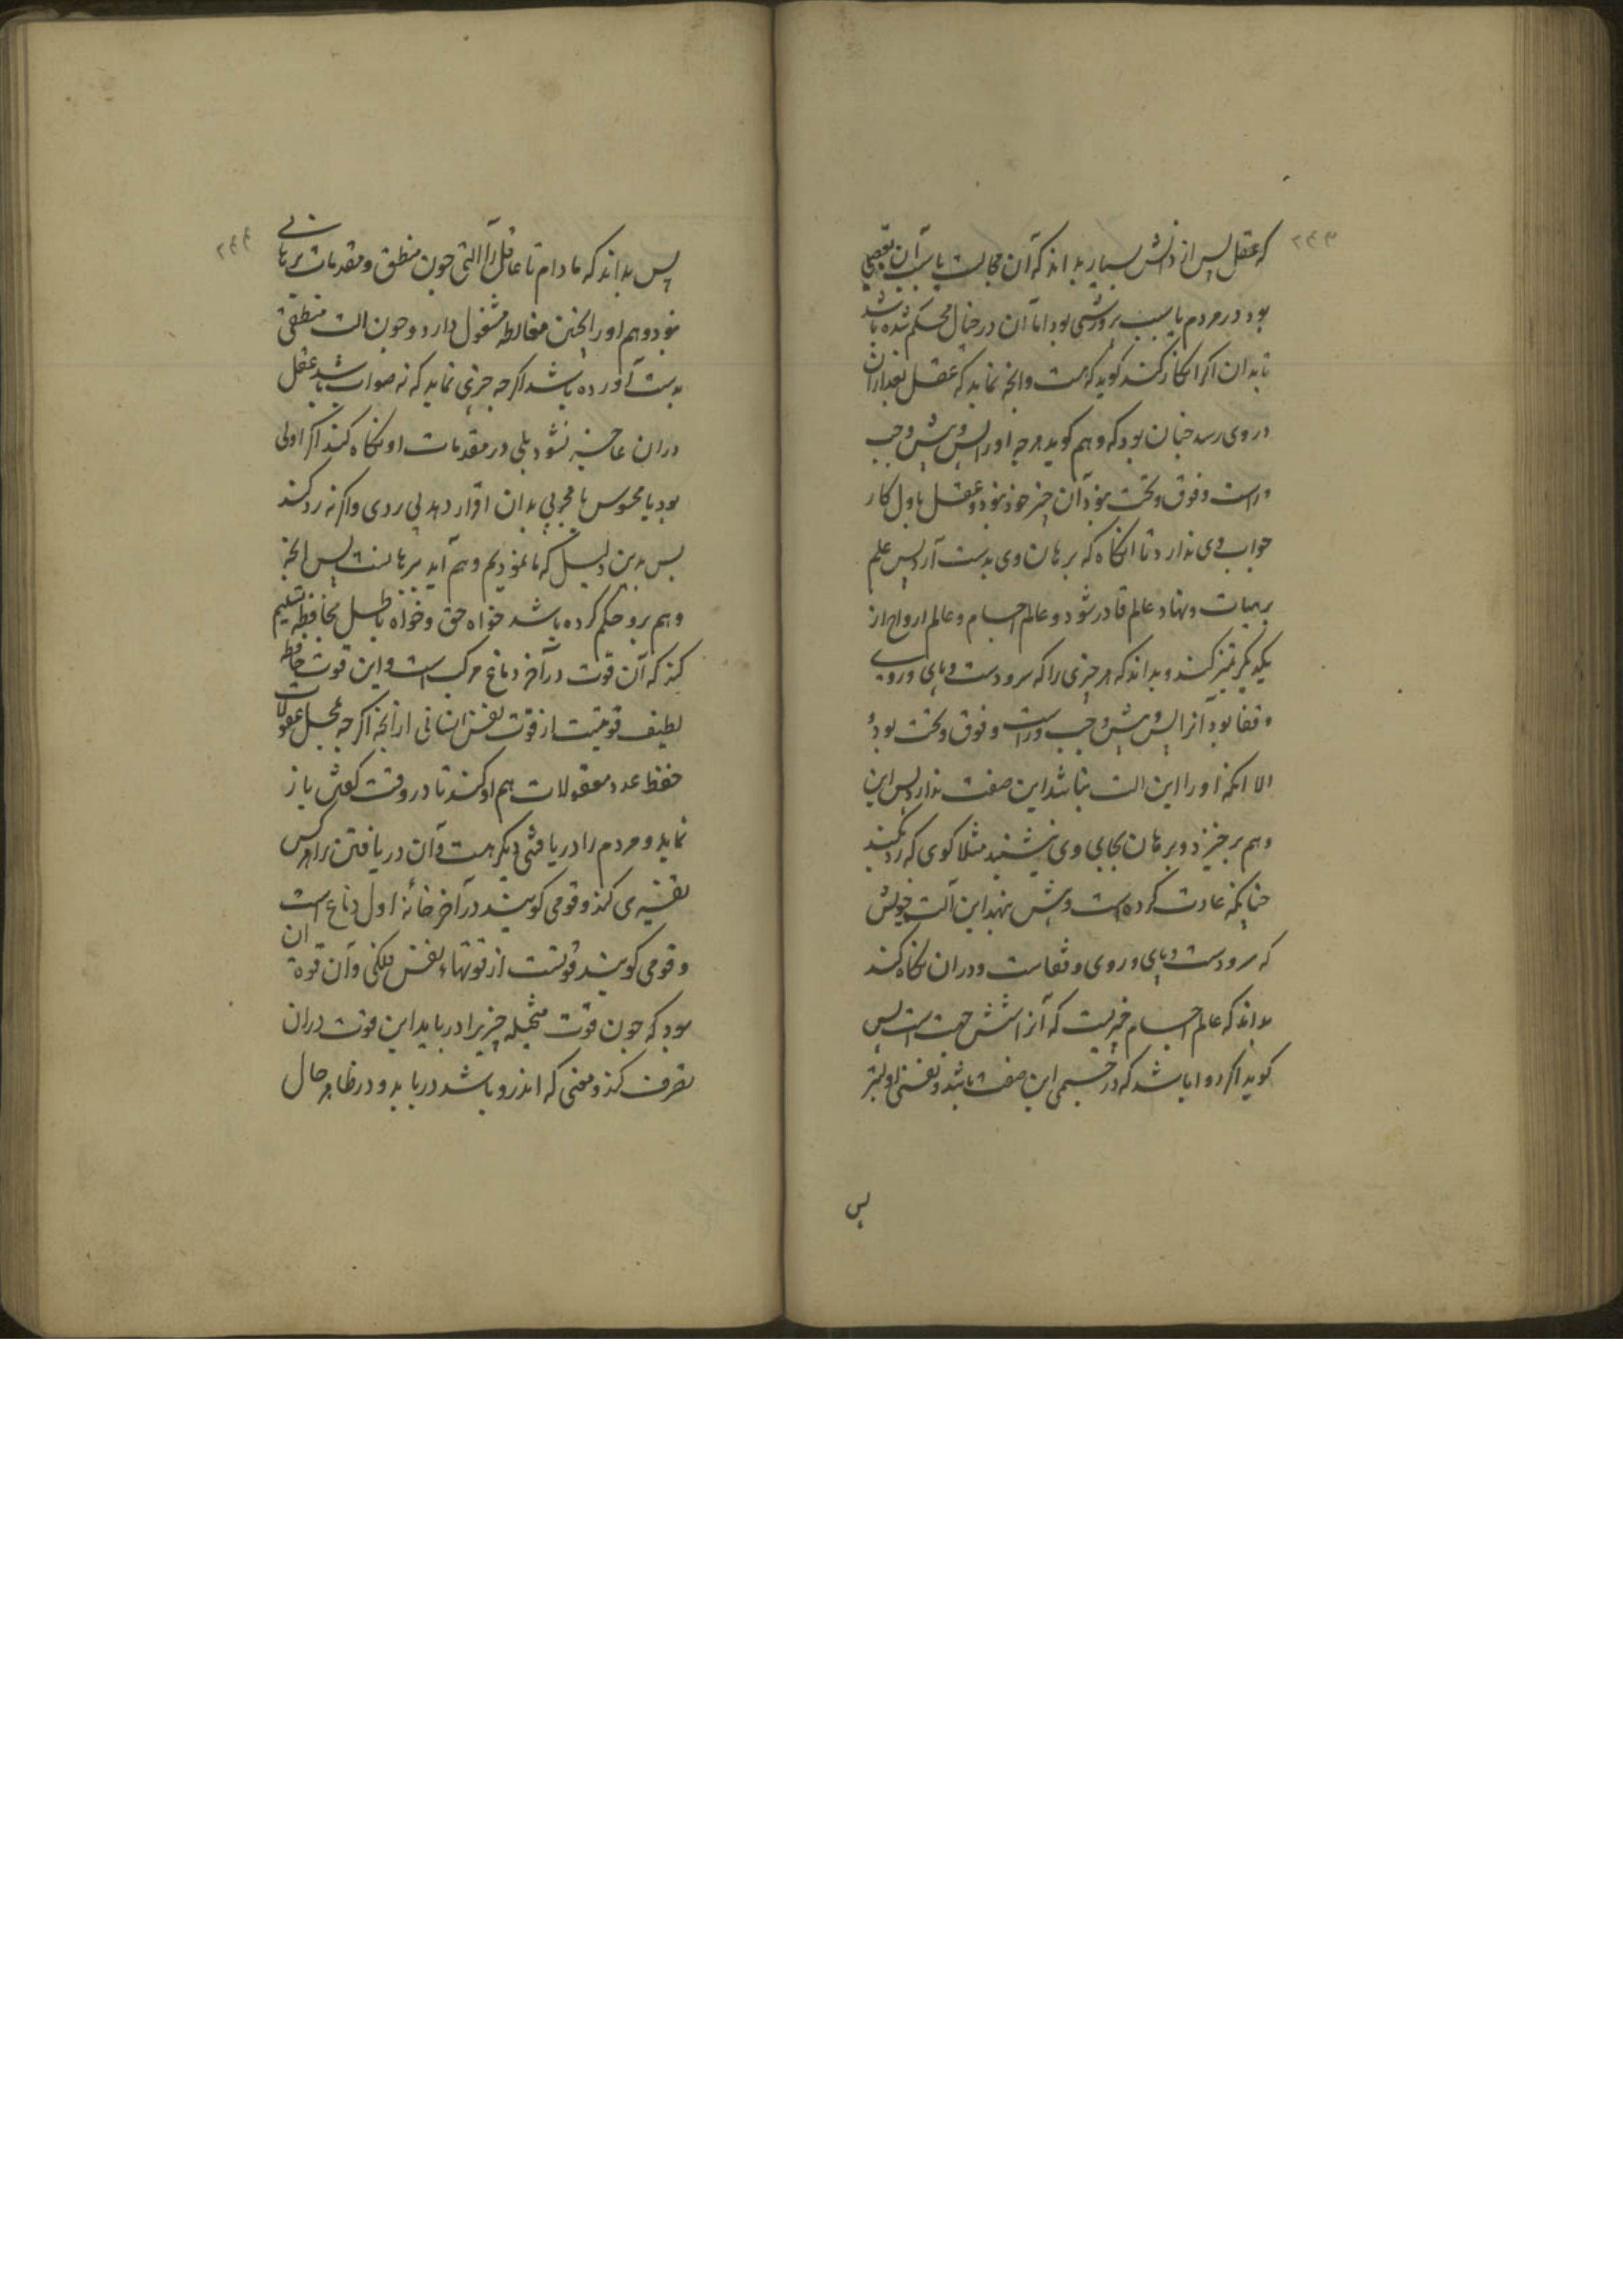 ۲۴۳
که عقل پس از دانش بسیار بداند که آن محالست یا سبب آن نقصی
بود در مردم یا سبب پرورشی بود اما آن در خیال محکم شده باشد
تا بدان اکر انکار کنند کوید که هست وانچه نماید که عقل بعد ازان
در وی رسد چنان بود که وهم کوید هرچه او را پس و پیش و چپ
و راست و فوق و تحت نبود آن چیز خود نبود و عقل باول کار
جواب وی ندارد تا انکاه که برهان وی بدست آرد پس علم
بر هیات و نهاد عالم قادر شود و عالم اجسام و عالم ارواح از
یکدیکر تمیز کند و بداند که هر چیزی را که سر و دست و پای و روی
و قفا بود آنرا پس و پیش و چپ و راست و فوق و تحت بود و
الا انکه او را این الت نباشد این صفت ندارد پس این
وهم برخیزد و برهان بجای وی بنشیند مثلا کوی که رد کنید
چنانکه عادت کرده است و پیش نهد این آلت خویش
که سر و دست و پای و روی و قفاست و دران نکاه کند
بداند که عالم اجسام چیزیست که آنرا شش جهت است پس
کوید اکر روا باشد که در جسمی این صفت باشد و نفسی اولیتر
پس
۲۴۴
پس بداند که مادام تا عاقل را آلتی چون منطق و مقدمات برهانی
نبود وهم او را بچنین مغالطه مشغول دارد و چون الت منطقی
بدست آورده باشد اکرچه چیزی نماید که نه صواب باشد عقل
دران عاجز نشود بلی در مقدمات او نکاه کند اکر اولی
بود یا محسوس یا مجربی بدان اقرار دهد بی ردی واکرنه رد کند
پس بدین دلیل که ما نمودیم وهم آید برهانست پس انچه
وهم برو حکم کرده باشد خواه حق و خواه باطل بحافظه تسلیم
کند که آن قوت در آخر دماغ مرکب است و این قوت حافظه
لطیف قوتیست از قوت نفس انسانی ازانچه اکرچه محل معقولات
حفظ عدد معقولات هم او کند تا در وقت کفتن باز
نماید و مردم را دریافتی دیکر هست و آن دریافتن را هرکس
تفسیری کند و قومی کویند در آخر خانه اول دماغ است
و قومی کویند قوتیست از قوتهاء نفس فلکی و آن قوة ان
بود که چون قوت متخیله چیزیرا دریابد این قوت دران
تصرف کند و معنی که اندرو باشد دریابد و در ظاهر حال